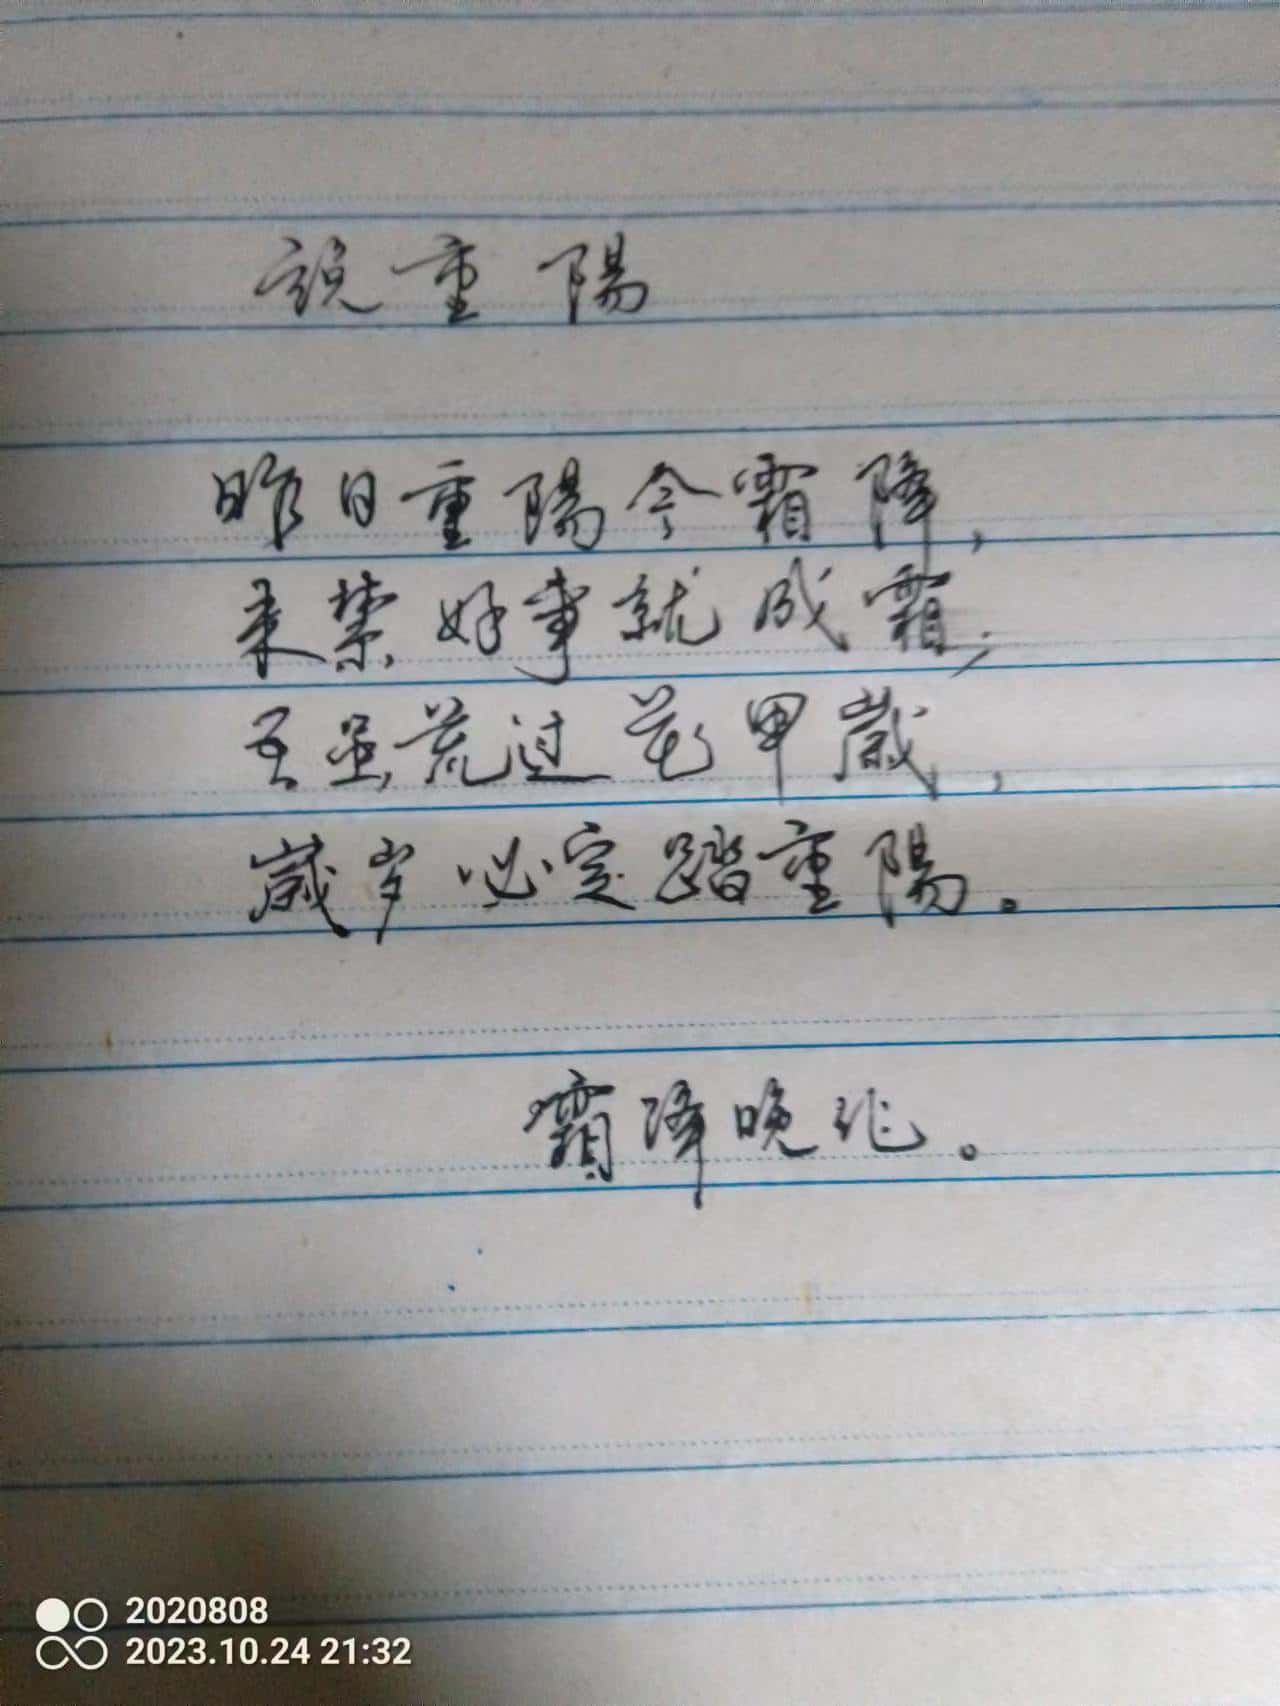 説重陽
昨日重陽今霜降,
未禁好事就成霜;
互显荒过花甲歲,
歲岁必定踏重陽。
霜降晚作。
2020808
2023.10.24 21:32